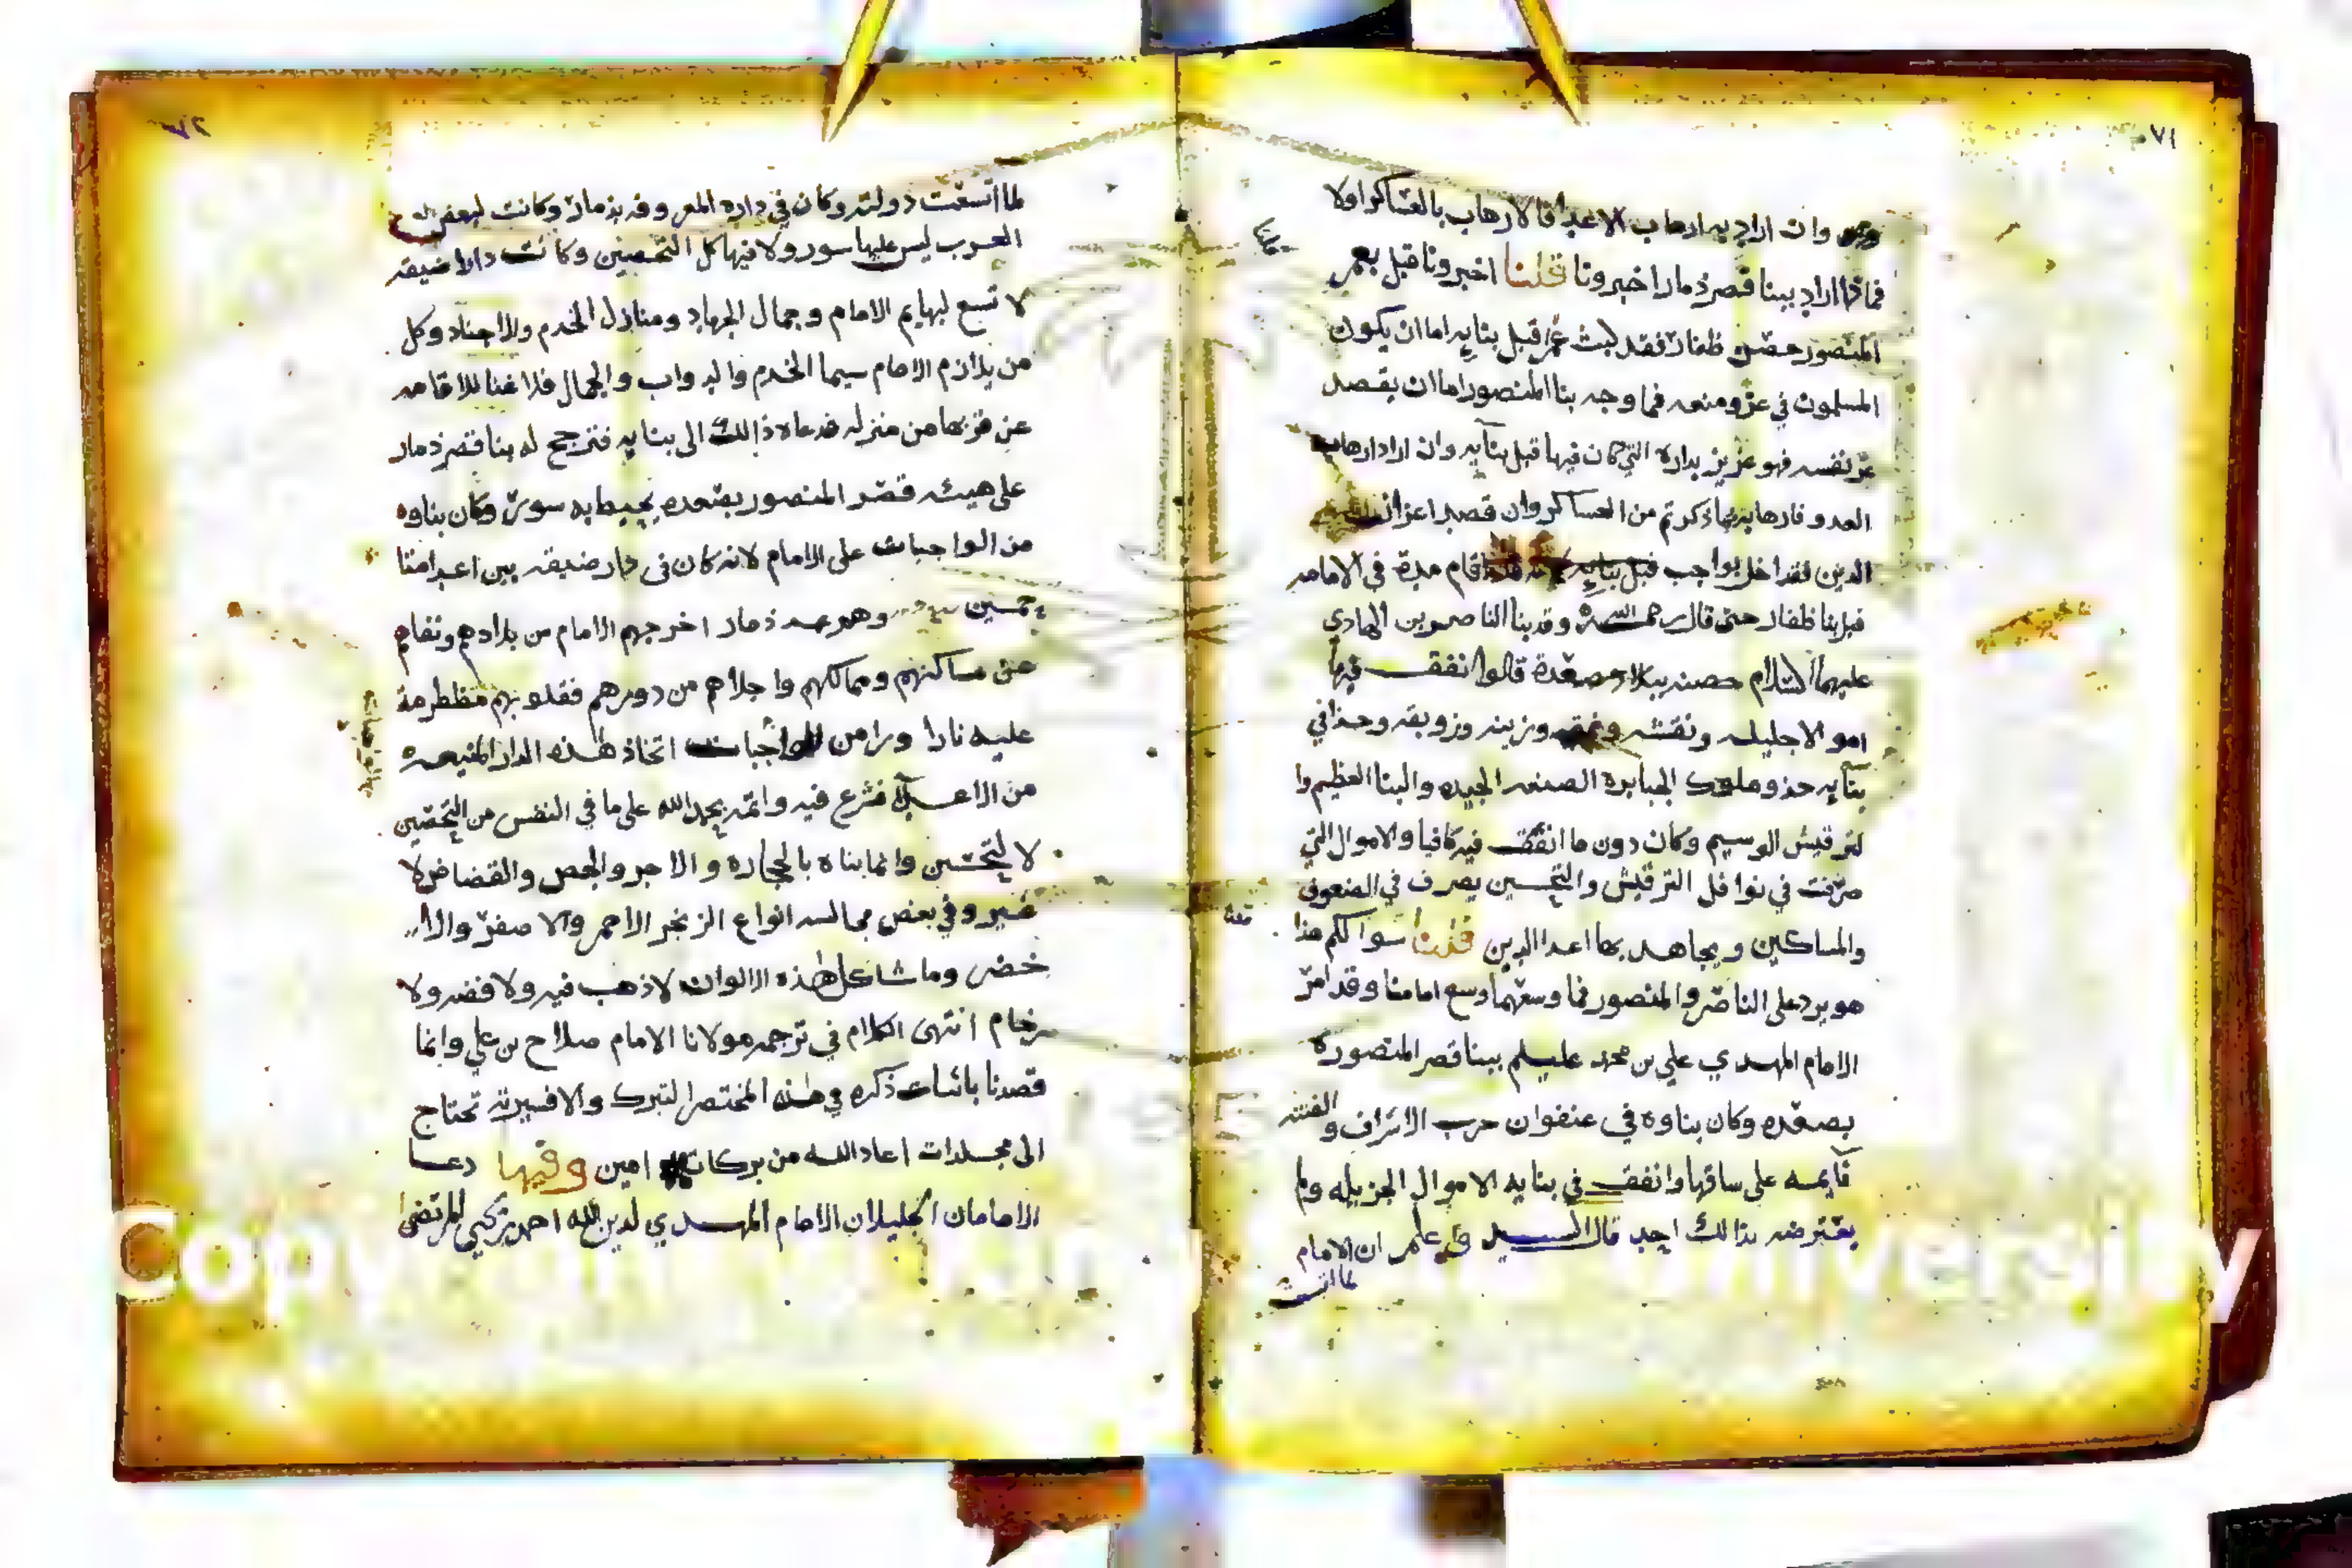 ٧١
وان اراد به ارهاب الاعدا فالارهاب بالعساكر اولا
فماذا اراد ببنا قصر ذمار اخبرونا قلنا اخبرونا قبل يعمر
المنصور حصن ظفار فقد لبث عمرا قبل بنايه اما ان يكون
المسلمون في عز ومنعه فما وجه بنا المنصور اما ان يقصد
عز نفسه فهو عزيز بداره التي كان فيها قبل بنآيه وان اراد ارهاب
العدو فارهابه بما ذكرتم من العساكر وان قصد اعزاز
الدين فقد اخل بواجب قبل بنايه اقام مدة في الامامه
قبل بنا ظفار حتى قال رحمه الله وقد بنا الناصر بن الهادي
عليهما السلام حصنه ببلاد صعدة قالوا انفق فيها
اموالا جليله ونقشه ونمقه وزينه وزوبقه وحذا في
بنآيه حذو ملوك الجبابره الصنعه الجيده والبنا العظيم وا
لترقيش الوسيم وكان دون ما انفق فيه كافيا والاموال التي
صرفت في نوافل الترقيش والتحسين يصرف في الضعون
والمساكين ويجاهد بها اعدا الدين قلنا سوالكم هذا
هو يرد على الناصر والمنصور فما وسعهما وسع امامنا وقد امر
الامام المهدي علي بن محمد عليلم ببنا قصر المنصورة
بصعده وكان بناوه في عنفوان حرب الاشراف والفتنه
قآيمه على ساقها وانفق في بنايه الاموال الجزيله ولم
يعترضه بذالك احد قال السيد واعلم ان الامام
لما اتسعت
٧٢
لما اتسعت دولته وكان في داره المعروفه بذمار وكانت لبعض
العرب ليس عليها سور ولا فيها كل التحصين وكانت دارا ضيقه
لا تسع لبهايم الامام وجمال الجهاد ومنازل الخدم والاجناد وكل
من يلازم الامام سيما الخدم والدواب والجمال فلا غنا للاقامه
عن قربها من منزله فدعاه ذالك الى بنايه فترجح له بنا قصر ذمار
على هيئه قصر المنصور بصعده يحيط به سور وكان بناوه
من الواجبات على الامام لانه كان في دار ضيقه بين اعدا منا
وهو عمد ذمار اخرجهم الامام من بلادهم ونفاهم
عن مساكنهم وممالكهم واجلاهم من دورهم فقلوبهم مضطرمة
عليه نارا ورا من الواجبات اتخاذ هذه الدار المنيعه
من الاعدآ فشرع فيه واتمه بحمد الله على ما في النفس من التحصين
لا لتحسين وانما بناه بالحجاره والاجر والجص والقضاض لا
غير وفي بعض مجالسه انواع الزنجر الاحمر والاصفر والا
خضر وما شاكل هذه الالوان لا ذهب فيه ولا فضه ولا
رخام انتهى الكلام في ترجمه مولانا الامام صلاح بن علي وانما
قصدنا باثبات ذكره في هذه المختصر التبرك والا فسيرته تحتاج
الى مجلدات اعاد الله من بركاته امين وفيها دعا
الامامان الجليلان الامام المهدي لدين الله احمد بن يحيى المرتضى